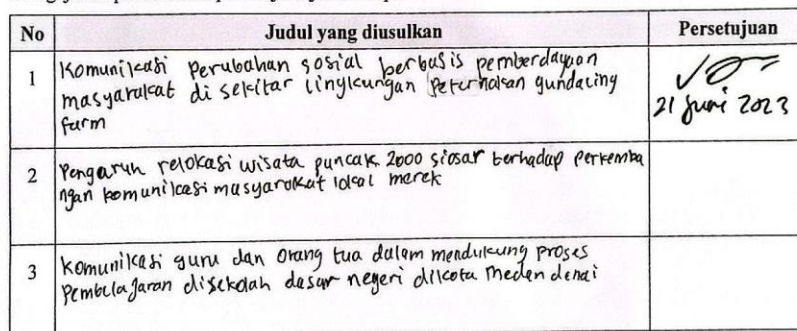 No Judul yang diusulkan Persetujuan
1 Komunikasi perubahan sosial berbasis pemberdayaan
masyarakat di sekitar lingkungan peternakan gundaling
farm
21 Juni 2023
2 Pengaruh relokasi wisata puncak 2000 siosar terhadap perkemba
ngan komunikasi masyarakat lokal merek
3 Komunikasi guru dan orang tua dalam mendukung proses
Pembelajaran disekolah dasar negeri dikota medan denai